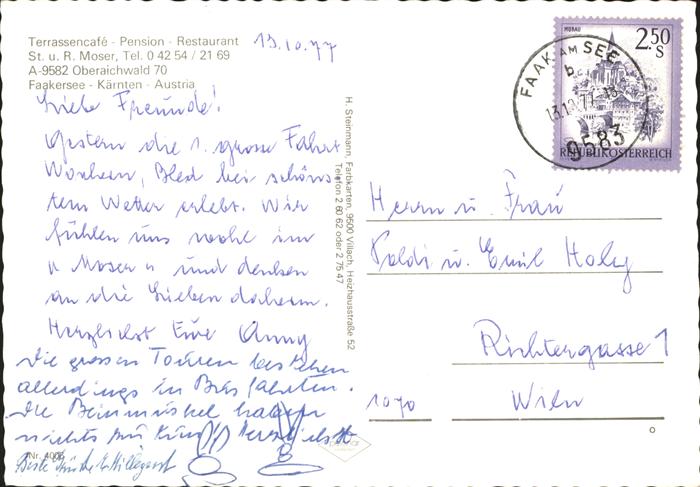 Terrassencafé - Pension - Restaurant
St. u. R. Moser, Tel. 0 42 54 / 21 69
A-9582 Oberaichwald 70
Faakersee - Kärnten - Austria
13.10.77
Liebe Freunde!
Gestern die 1. grosse Fahrt
Wochein, Bled bei schöns-
tem Wetter erlebt. Wir
fühlen uns wohl im
"Moser" und denken
an die Lieben daheim.
Herzlichst Eure Anny
Die grossen Touren bestehen
allerdings in Busfahrten.
Die Beinmuskel haben
nichts zu Herzlichst
Beste Hildegard
Nr. 400
H. Steinmann, Farbkarten, 9500 Villach, Heizhausstraße 52
Telefon 2 60 62 oder 2 75 47
MURAU
2.50
S
REPUBLIK ÖSTERREICH
FAAK AM SEE
b
13.10.77-18
9583
Herrn u. Frau
Poldi u. Emil Holy
Richtergasse 1
1070 Wien